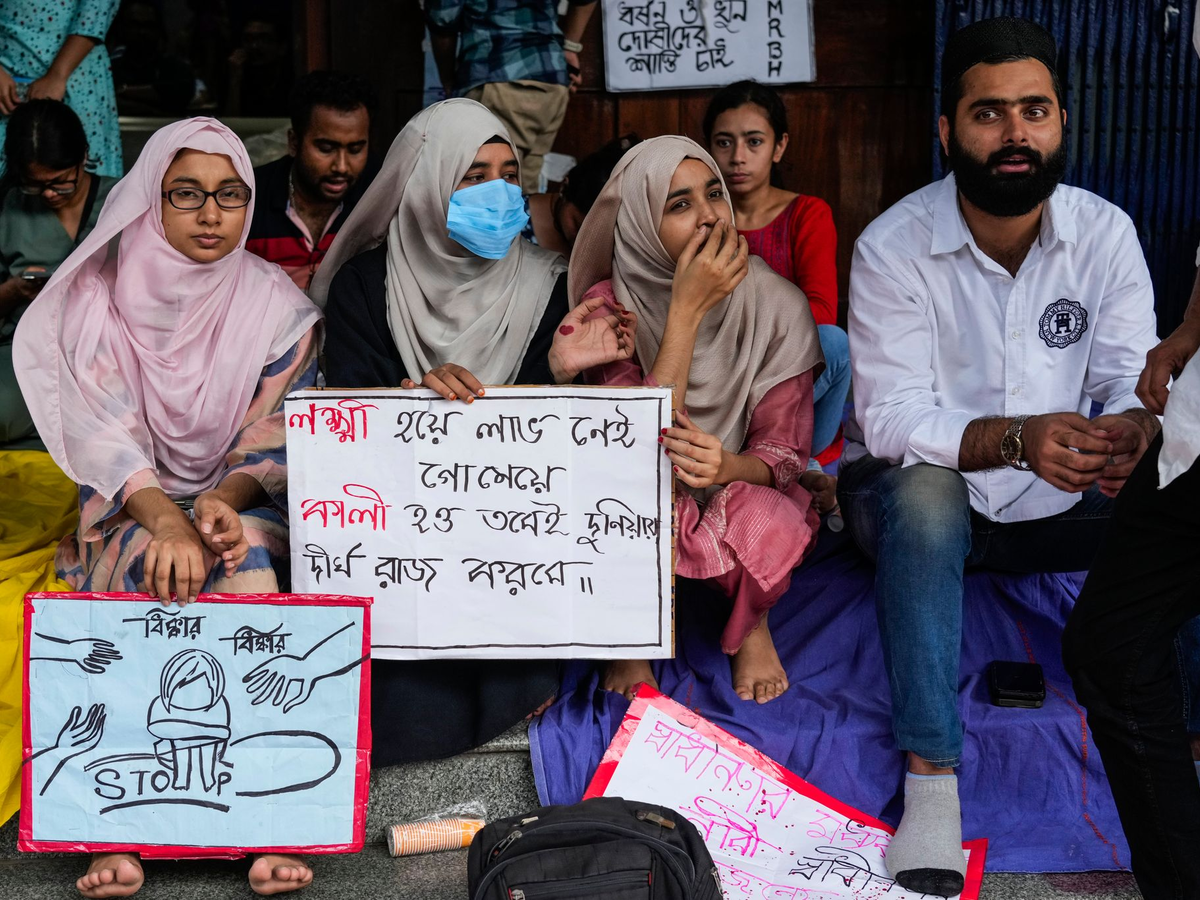 ধর্ষন ও খুন
দোষীদের
শাস্তি চাই
MRBH
লক্ষ্মী হয়ে লাভ নেই
গো মেয়ে
কালী হও তবেই দুনিয়ায়
দীর্ঘ রাজ করবে॥
ধিক্কার
ধিক্কার
STOP
স্বাধীনতার
নারী
স্বাধীন